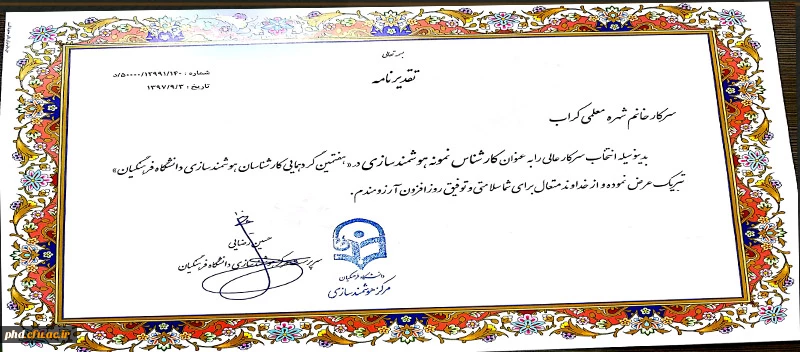 بسمه تعالی
تقدیرنامه
شماره : ۵۰۰۰۰/۱۲۹۹۱/۱۴۰/د
تاریخ : ۱۳۹۷/۹/۳
سرکار خانم شهره معلمی کراب
بدینوسیله انتخاب سرکار عالی را به عنوان کارشناس نمونه هوشمندسازی در « هفتمین گردهمایی کارشناسان هوشمندسازی دانشگاه فرهنگیان»
تبریک عرض نموده و از خداوند متعال برای شما سلامتی و توفیق روزافزون آرزومندم.
حسین رضایی
سرپرست مرکز هوشمندسازی دانشگاه فرهنگیان
دانشگاه فرهنگیان
مرکز هوشمندسازی
phd.cfu.ac.ir